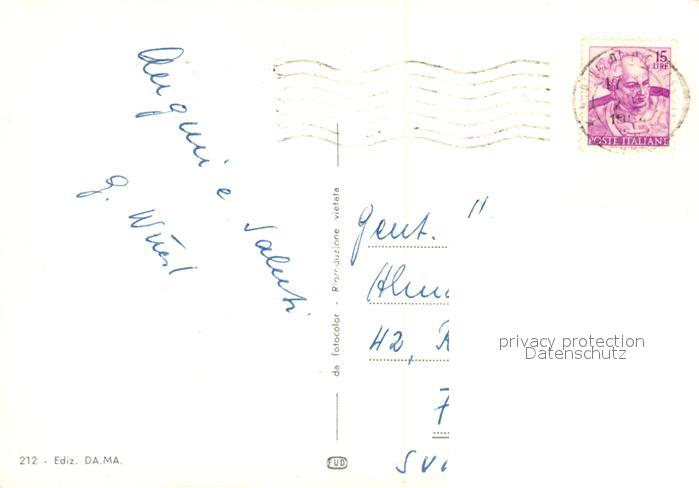 Auguri e Saluti
G. Wüest
15
LIRE
POSTE ITALIANE
17
da fotocolor - Riproduzione vietata
Gent.
42,
privacy protection
Datenschutz
212 - Ediz. DA.MA.
FUD